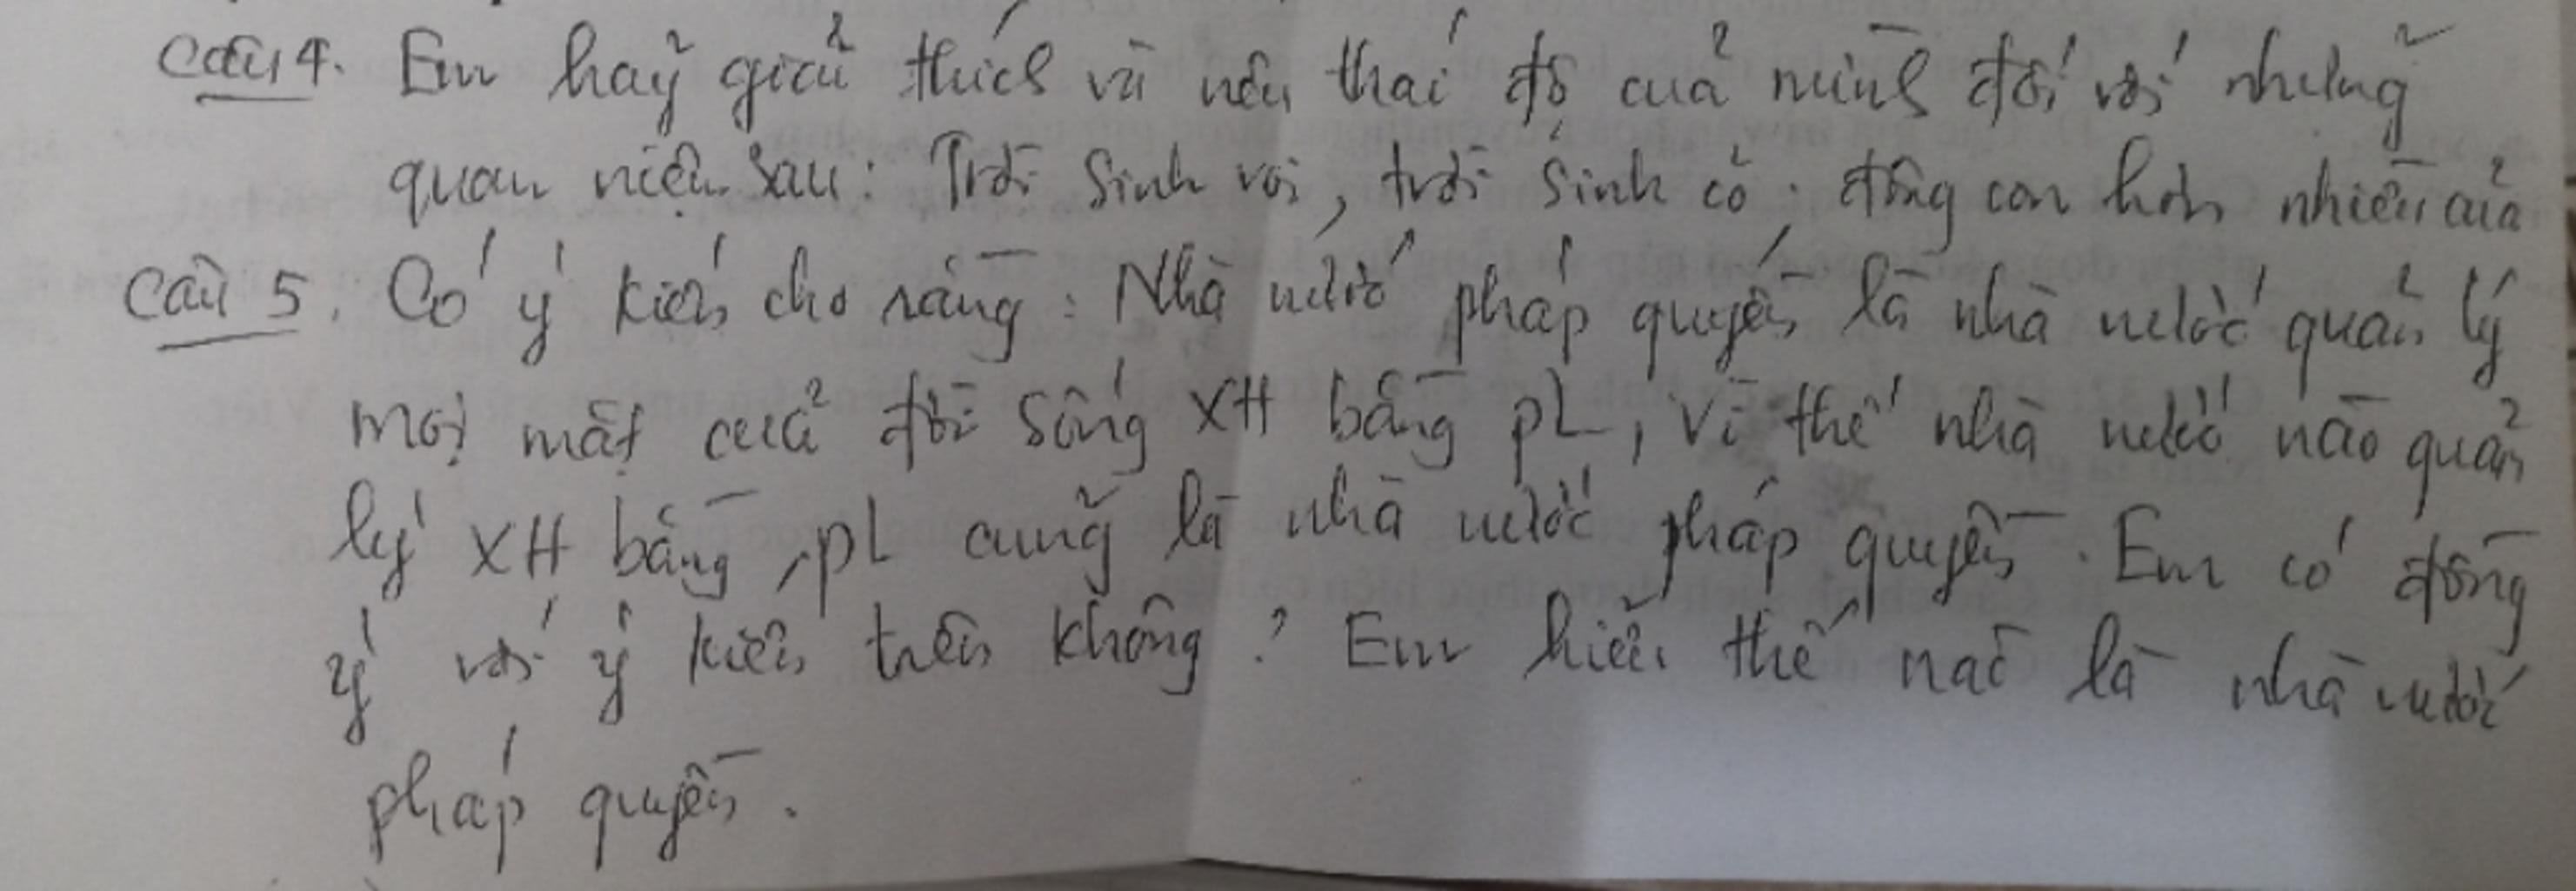 Câu 4. Em hãy giải thích và nêu thái độ của mình đối với những
quan niệm sau: Trời sinh voi, trời sinh cỏ; đông con hơn nhiều của
Câu 5. Có ý kiến cho rằng: Nhà nước pháp quyền là nhà nước quản lý
mọi mặt của đời sống XH bằng PL, Vì thế nhà nước nào quản
lý XH bằng PL cũng là nhà nước pháp quyền. Em có đồng
ý với ý kiến trên không? Em hiểu thế nào là nhà nước
pháp quyền.